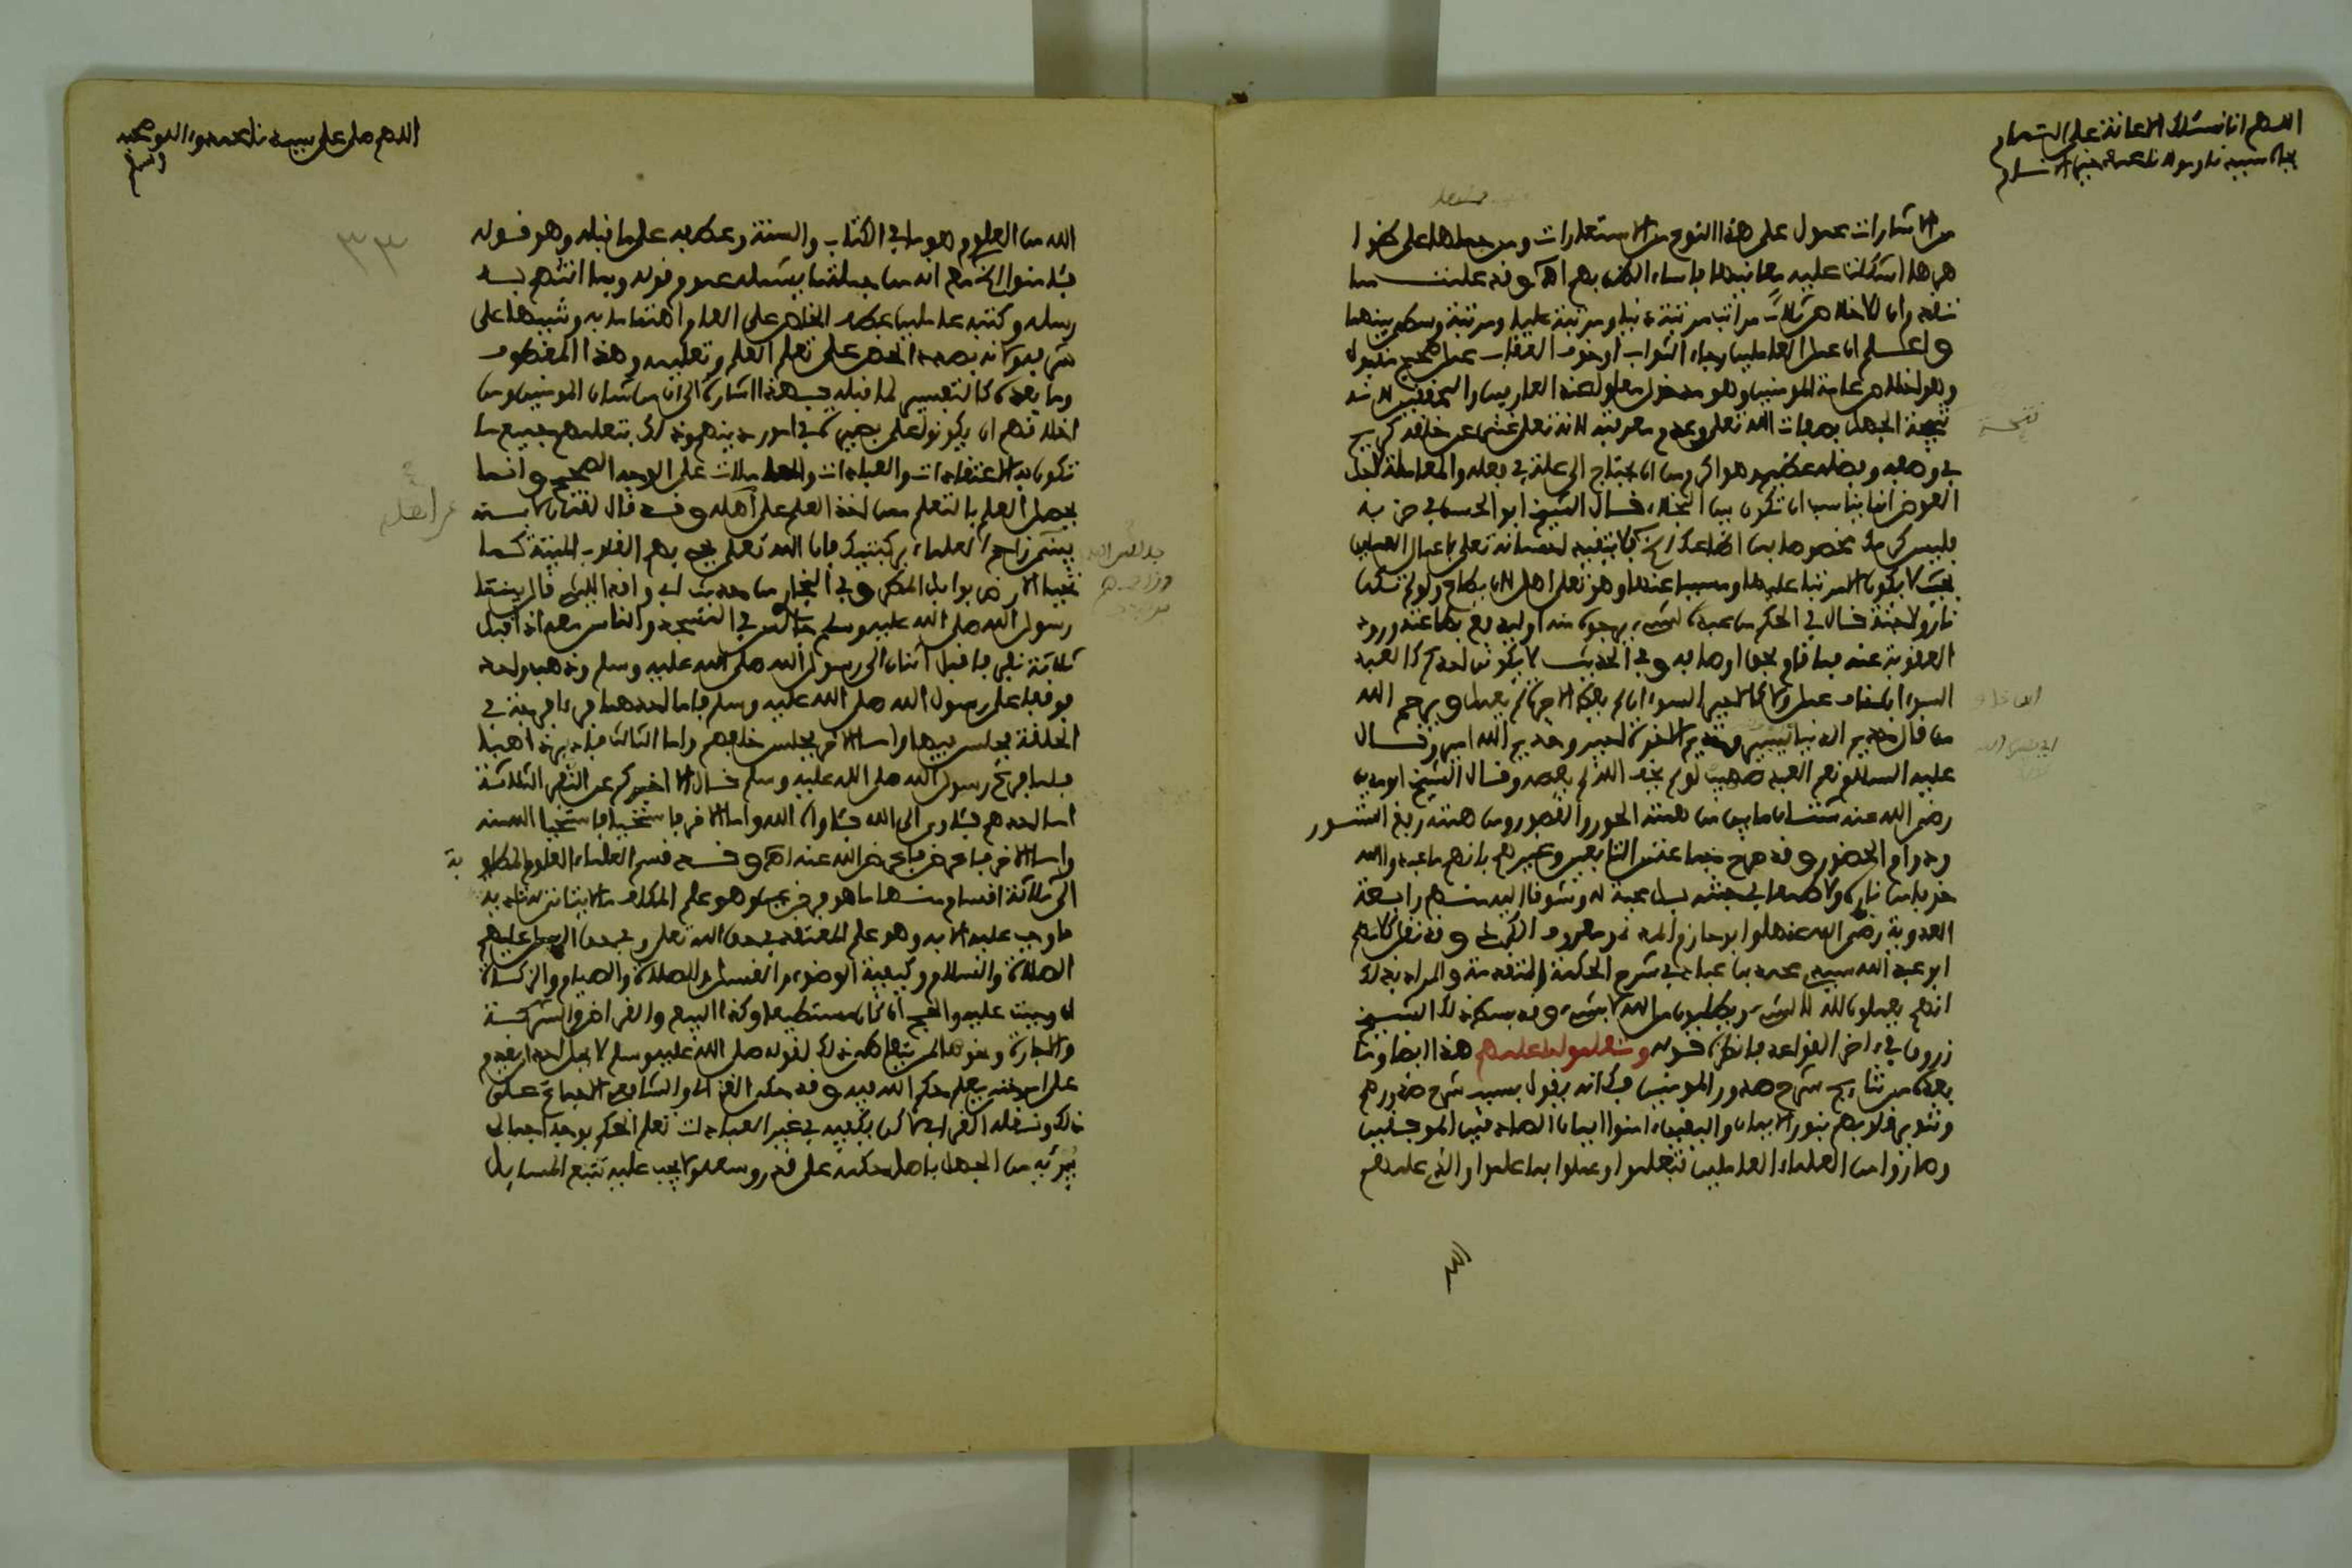 اللهم انا نسئلك الاعانة على التمام
بجاه سيدنا ومولانا محمد خير الانام
من الاشارات محمول على هذا النوع من الاستعارات ومن حملها على
هرها اشكلت عليه معانيها فاساء الظن بهم اه وقد علمت مما
تقدم وان الاخلاص ثلاث مراتب مرتبة دنيا ومرتبة عليا ومرتبة وسطى بينهما
واعلم ان عمل العاملين رجاء الثواب او خوف العقاب عمل صحيح مقبول
وهو اخلاص عامة المومنين وهو مدخول معلول عند العارفين والمحققين لانه
نتيجة الجهل بصفات الله تعلى وعدم معرفته لانه تعلى غني عن خلقه كريم
في وصفه وفضله عظيم هو اكرم من ان يحتاج الى علة في فعله والمعاملة لاجل
العوض انما يناسب ان تكون بين البخلاء قال الشيخ ابو الحسن في حزبه
فليس كرمك مخصوصا بمن اطاعك الخ فلا يتقيد احسانه تعلى باعمال العاملين
بحيث لا يكون الا مرتبا عليها ومسببا عنها وهو تعلى اهل لان يطاع ولو لم تكن
نار ولا جنة قال في الحكم من عبده لشيء يرجوه منه او ليدفع بطاعته ورود
العقوبة عنه فما قام بحق اوصافه وفي الحديث لا يكونن احدكم كالعبد
السوء ان خاف عمل ولا كالاجير السوء ان لم يعط الاجرة لم يعمل ويرحم الله
من قال
عليه السلام نعم العبد صهيب لو لم يخف الله لم يعصه وقال الشيخ ابو مدين
رضي الله عنه شتان ما بين من همته الحور والقصور ومن همته رفع الستور
ودوام الحضور وقد صرح جماعة من التابعين وغيرهم بانهم ما عبدوا الله
خوفا من ناره ولا طمعا في جنته بل محبة له وشوقا اليه منهم رابعة
العدوية رضي الله عنها وابو حازم المدني ومعروف الكرخي وقد نقل كلامهم
ابو عبد الله سيدي محمد بن عباد في شرح الحكمة المتقدمة والمراد بذلك
انهم يعملون لله لا لشيء ويطلبون من الله لا بشيء وقد بسط ذلك الشيخ
زروق في اخر القواعد فانظره قوله وتعلموا ما علمهم هذا ايضا وما
بعده من نتايج شرح صدور المومنين فكانه يقول بسبب شرح صدورهم
وتنوير قلوبهم بنور الايمان واليقين امنوا ايمان الصادقين الموقنين
وصاروا من العلماء العاملين فتعلموا وعملوا بما علموا والذي علمهم
نتيجة
اللهم صل على سيدنا محمد واله وصحبه
وسلم
٣٣
الله من العلوم هو ما في الكتاب والسنة وعطفه على ما قبله وهو قوله
فئامنوا الخ مع انه من جملة ما يشمله عموم قوله وبما اتتهم به
رسله وكتبه عاملين عطف الخاص على العام اهتماما به وتنبيها على
شرفه لانه بصدد الحض على تعلم العلم وتعليمه وهذا المعطوف
وما بعده كالتفسير لما قبله ففي هذا اشارة الى ان من شان المومنين ومن
اخلاقهم ان يكونوا على بصيرة في امور دينهم وذلك بتعلمهم جميع ما
تكون به الاعتقادات والعبادات والمعاملات على الوجه الصحيح وانما
يحصل العلم بالتعلم ممن اخذ العلم على اهله وقد قال لقمان لابنه
يبني زاحم العلماء بركبتيك فان الله تعلى يحيي بهم القلوب الميتة كما
تحيى الارض بوابل المطر وفي البخاري من حديث ابي واقد الليثي قال بينما
رسول الله صلى الله عليه وسلم جالس في المسجد والناس معه اذ اقبل
ثلاثة نفر فاقبل اثنان الى رسول الله صلى الله عليه وسلم وذهب واحد
فوقفا على رسول الله صلى الله عليه وسلم فاما احدهما فراى فرجة في
الحلقة فجلس فيها واما الاخر فجلس خلفهم واما الثالث فادبر ذاهبا
فلما فرغ رسول الله صلى الله عليه وسلم قال الا اخبركم عن النفر الثلاثة
اما احدهم فئاوى الى الله فئاواه الله واما الاخر فاستحيا فاستحيا الله منه
واما الاخر فاعرض فاعرض الله عنه اه وقد قسم العلماء العلوم المطلوبة
الى ثلاثة اقسام منها ما هو فرض عين وهو علم المكلف ما لا يتاتى له تادية
ما وجب عليه الا به وهو علم المعتقد في حق الله تعلى وفي حق الرسل عليهم
الصلاة والسلام وكيفية الوضوء والغسل والصلاة والصيام والزكاة
ان وجبت عليه والحج ان كان مستطيعا وكذا البيع والقراض والشركة
والاجارة ونحوها لمن يتعاطى ذلك لقوله صلى الله عليه وسلم لا يحل لاحد ان يقدم
على امر حتى يعلم حكم الله فيه وقد حكى الغزالي والشافعي الاجماع على
ذلك ونقله القرافي لاكن يكفيه في غير العبادات تعلم الحكم بوجه اجمالي
يبرئه من الجهل باصل حكمه على قدر وسعه ولا يجب عليه تتبع المسايل